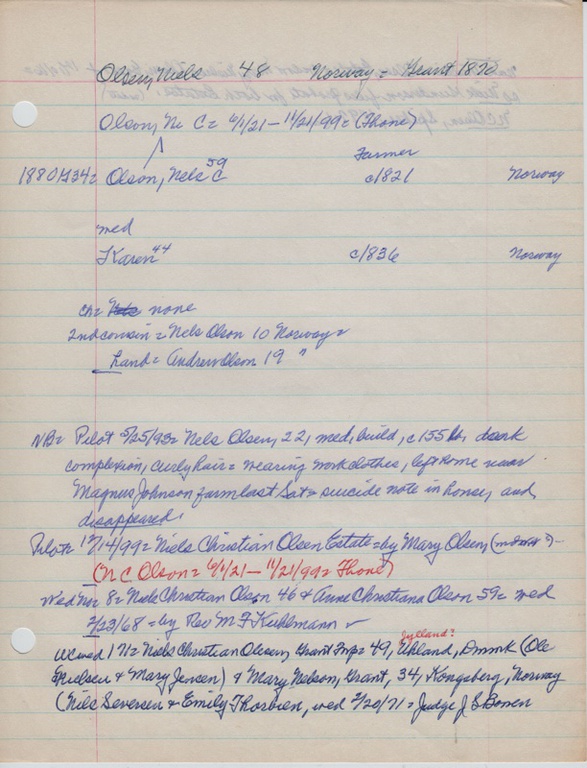 Olsen, Niels 48 Norway = Grant 1870
Olson, N. C = 6/1/21 – 11/21/99 = (Thone)
Farmer
1880 H34 = Olson, Nels C 59 c/821 Norway
med
Karen 44 c/836 Norway
ch = none
2nd cousin = Nels Olson 10 Norway =
hand = Andrew Olson 19 "
NB = Pilot 5/25/93 = Nels Olsen, 22, med. build, c 155 lb, dark
complexion, curly hair = wearing work clothes, left home near
Magnus Johnson farm last Sat = suicide note in house, and
disappeared.
Pilot = 12/14/99 = Niels Christian Olsen Estate = by Mary Olsen
(N C Olson = 6/1/21 – 11/21/99 = Thone)
Wed No 8 = Niels Christian Olson 46 & Anne Christiana Olson 59 = wed
2/23/68 = by Rev M F Kuhlmann
Jylland?
WC wed 171 = Niels Christian Olsen, Grant Twp = 49, Uhland, Dnmk (Ole
& Mary Jensen) & Mary Nelson, Grant, 34, Kongsberg, Norway
(Nils Seversen & Emily Thorbien, wed 2/20/71 = Judge J S Bowen